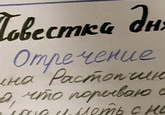 Повестка дня
Отречение
Растопчин
а, что порываю с
иметь с н